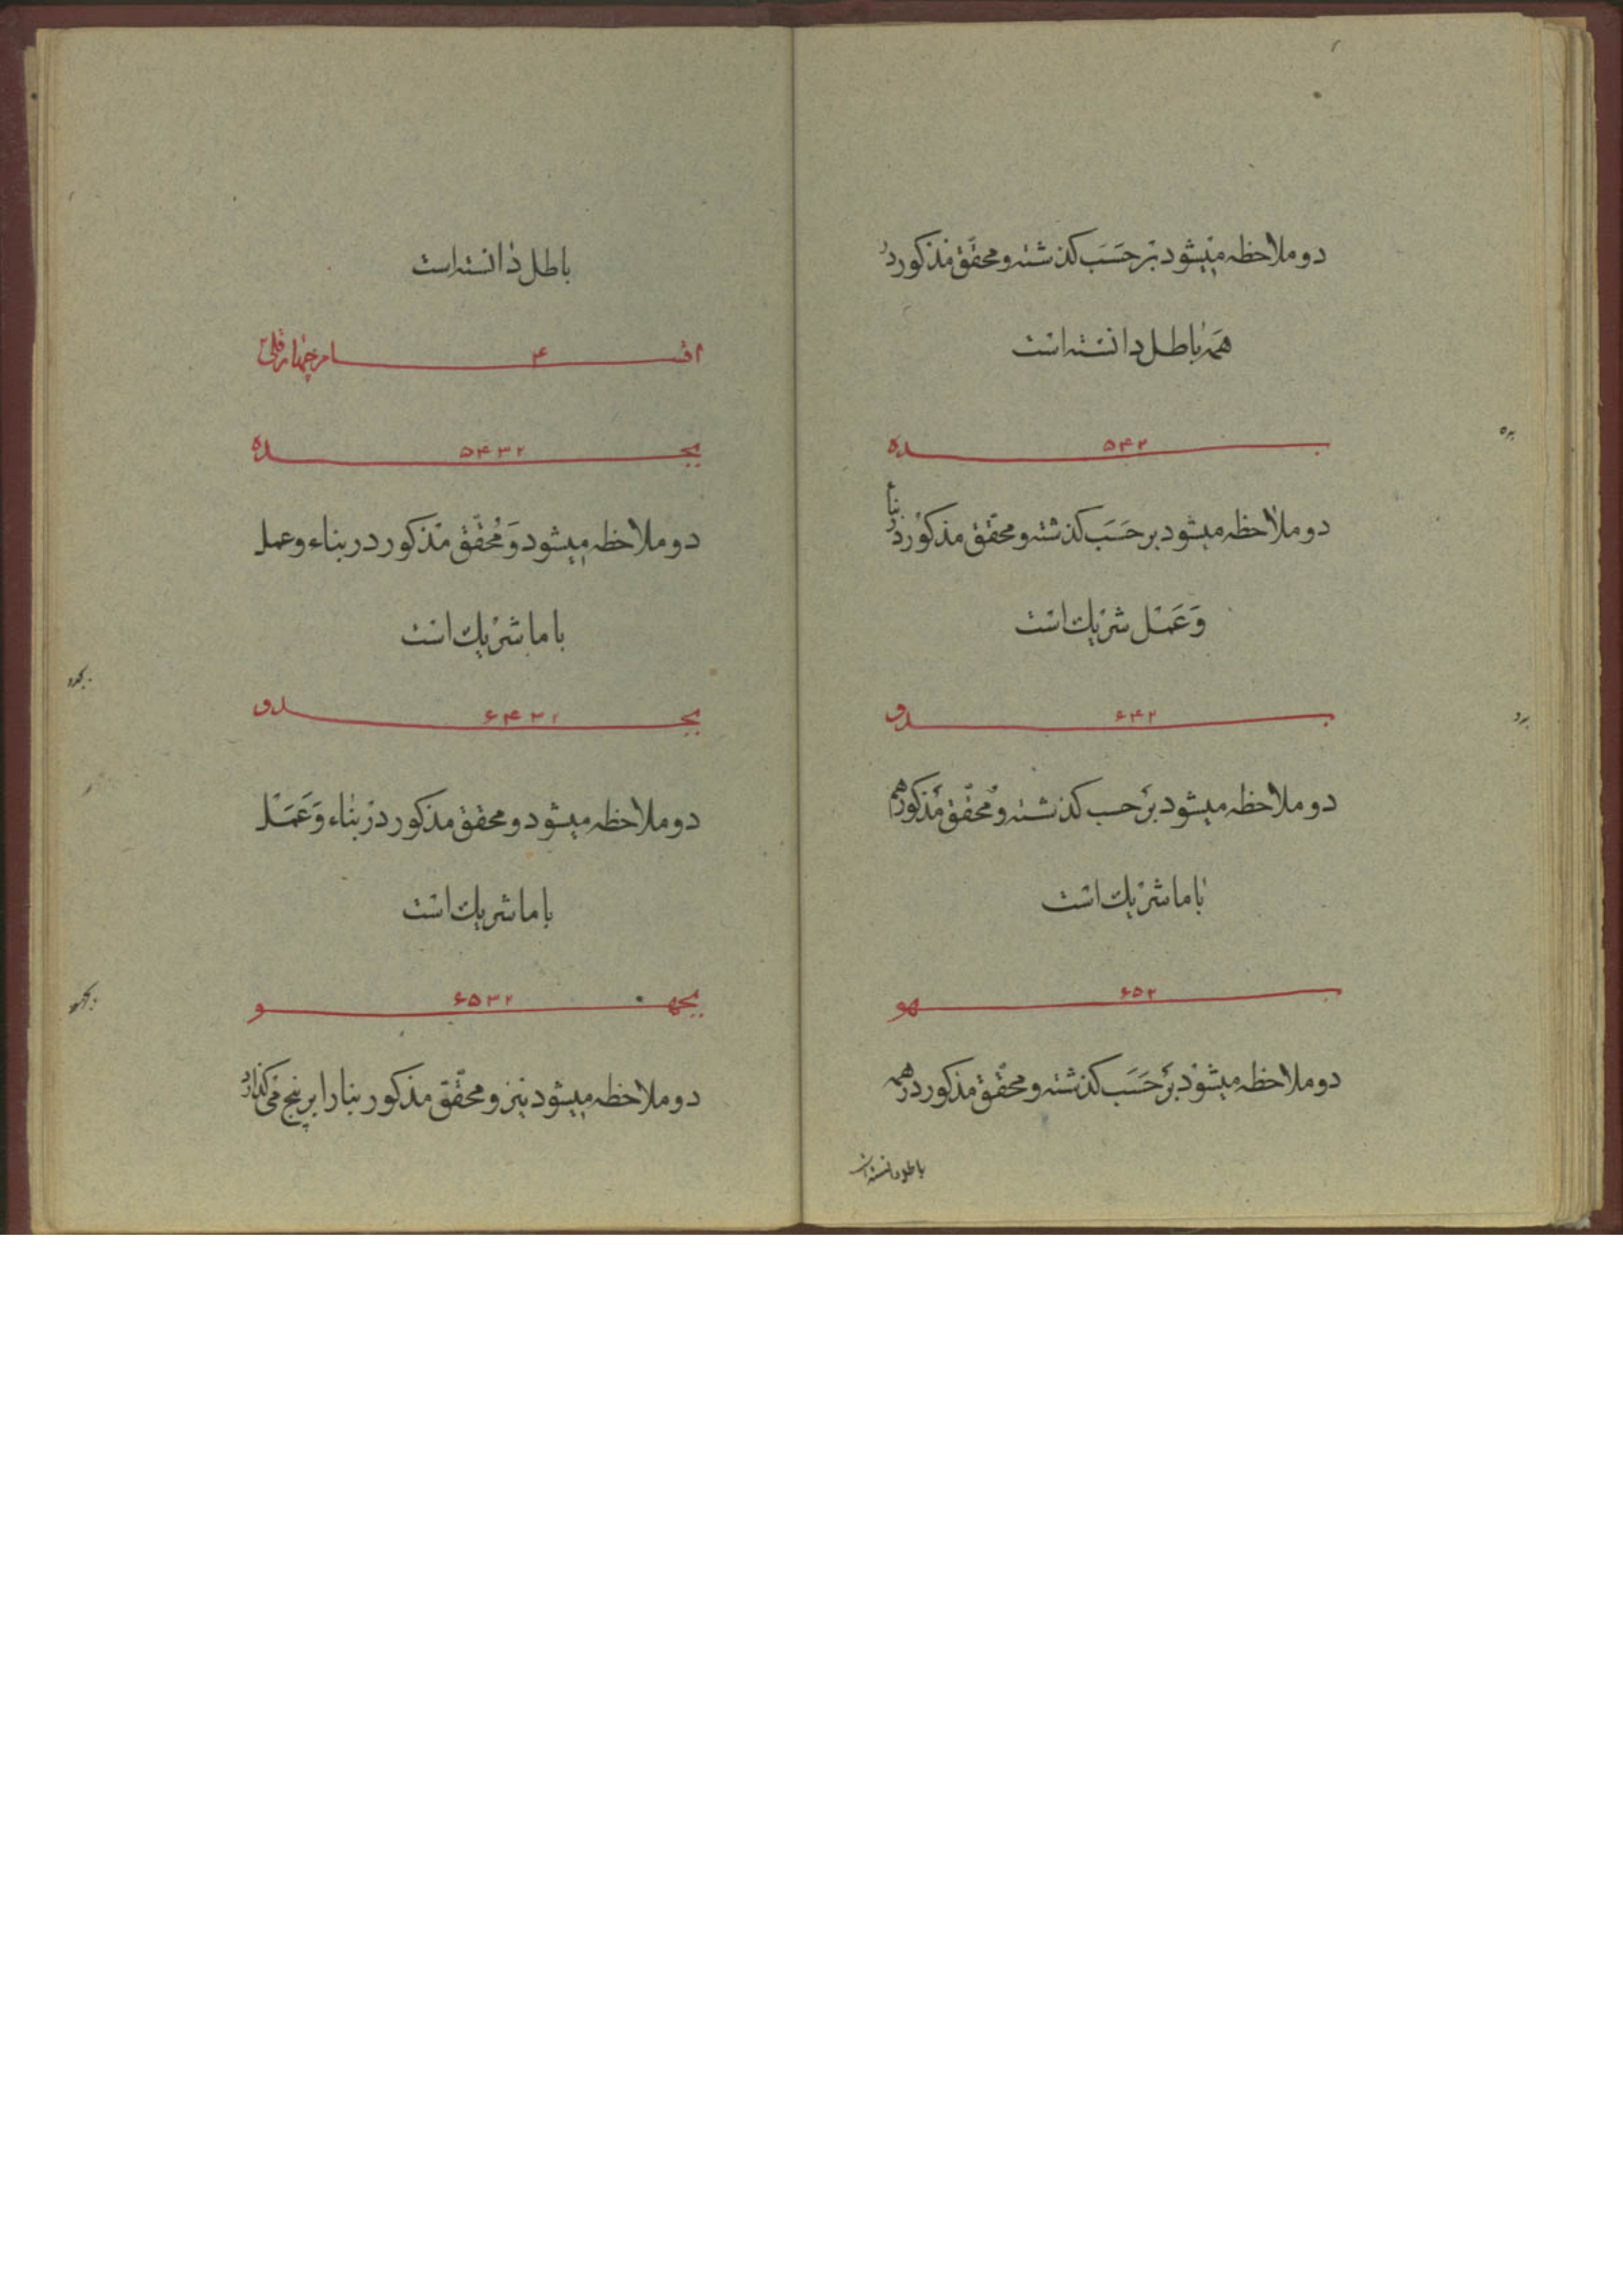 دو ملاحظه میشود بر حَسَب کذشته و محقّق مذکور در
همه باطل دانسته است
ب ۵۴۲ ده
بده
دو ملاحظه میشود بر حَسَب کذشته و محقّق مذکور در بناء
وَ عَمَل شریك است
ب ۶۴۲ دو
بدو
دو ملاحظه میشود بر حسب کذشته و محقّق مذکور هم
با ما شریك است
ب ۶۵۲ هو
دو ملاحظه میشود بر حَسَب کذشته و محقّق مذکور در همه
باطل دانسته است
باطل دانسته است
اقسام ۴ چهار رقمی
بج ۵۴۳۲ ده
دو ملاحظه میشود وَ مُحقّق مذکور در بناء و عمل
با ما شریك است
بج ۶۴۳۲ دو
بجدو
دو ملاحظه میشود و محقق مذکور در بناء وَ عَمَل
با ما شریك است
بجه ۶۵۳۲ و
بجهو
دو ملاحظه میشود نیز و محقّق مذکور بنا را بر پنج می کذارد